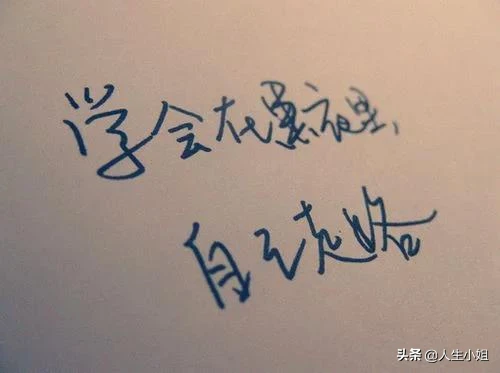 学会在黑夜里、
自己走路
头条 @人生小姐